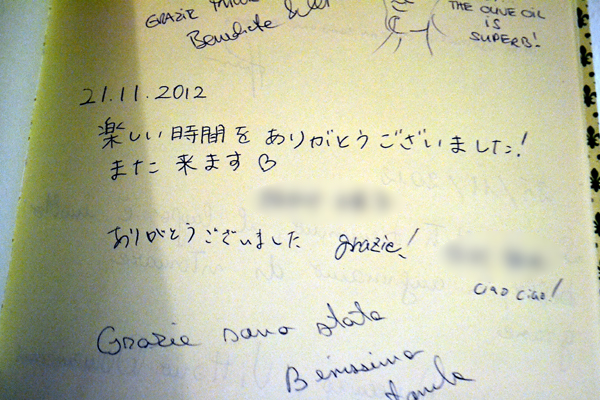 GRAZIE
THE OLIVE OIL
IS
SUPERB!
Benedicte
21.11.2012
楽しい時間を ありがとうございました!
また来ます♡
ありがとうございました grazie!
ciao ciao!
Grazie sono stata
Benissimo